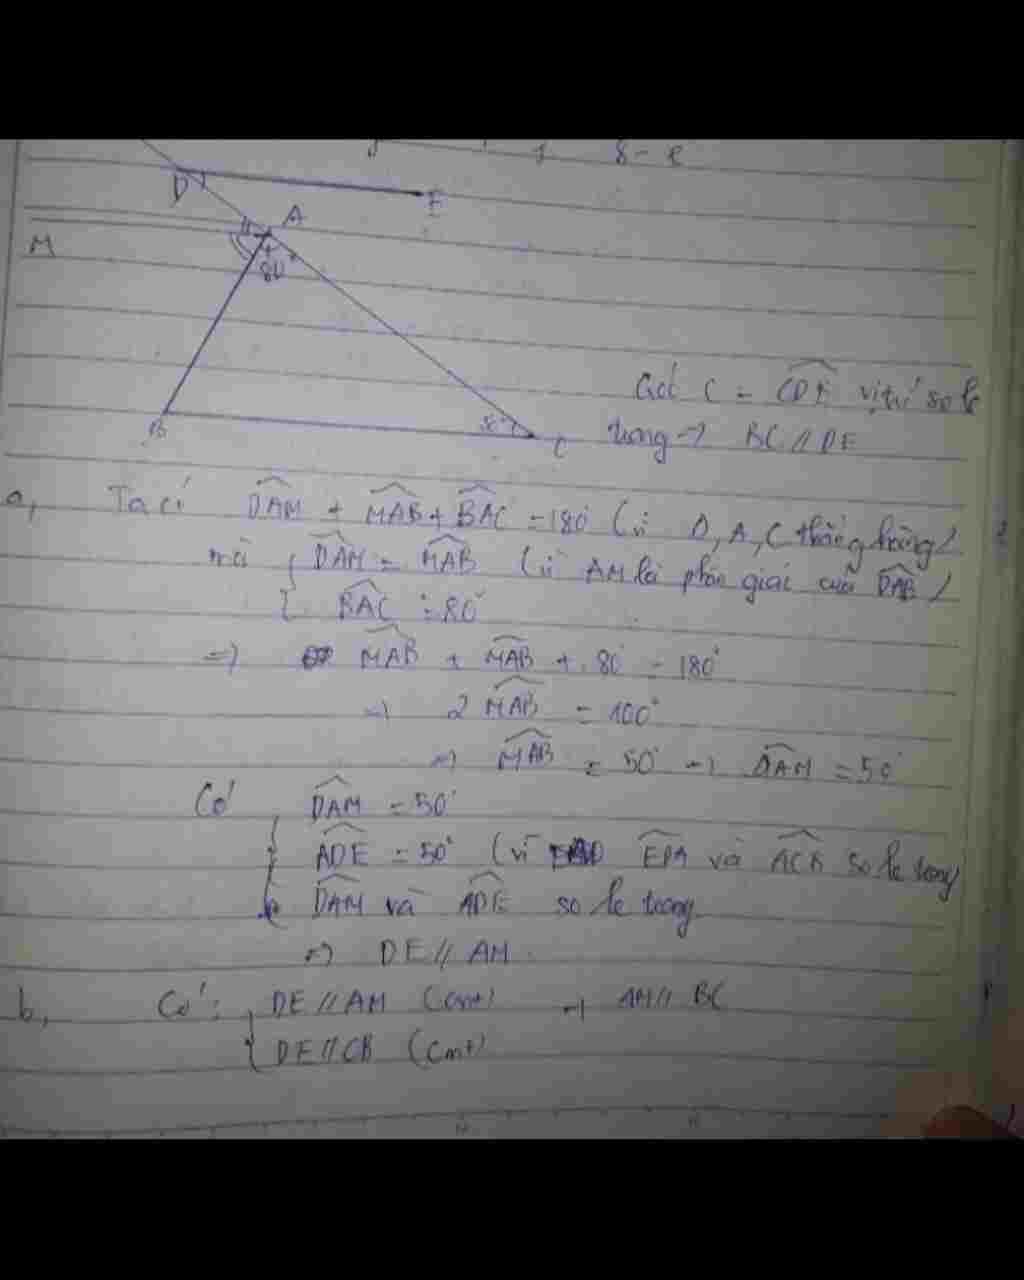 8 - e
D
E
A
M
80°
B
50°
C
Góc C = CDE vị trí so le
trong → BC // DE
a, Ta có DAM + MAB + BAC = 180° (vì D, A, C thẳng hàng)
mà { DAM = MAB (vì AM là phân giác của DAB)
BAC = 80°
=> MAB + MAB + 80° = 180°
=> 2 MAB = 100°
=> MAB = 50° => DAM = 50°
Có { DAM = 50°
ADE = 50° (vì EDA và ACB so le trong
DAM và ADE so le trong
=> DE // AM
b, Có: { DE // AM (cmt) => AM // BC
DE // CB (cmt)